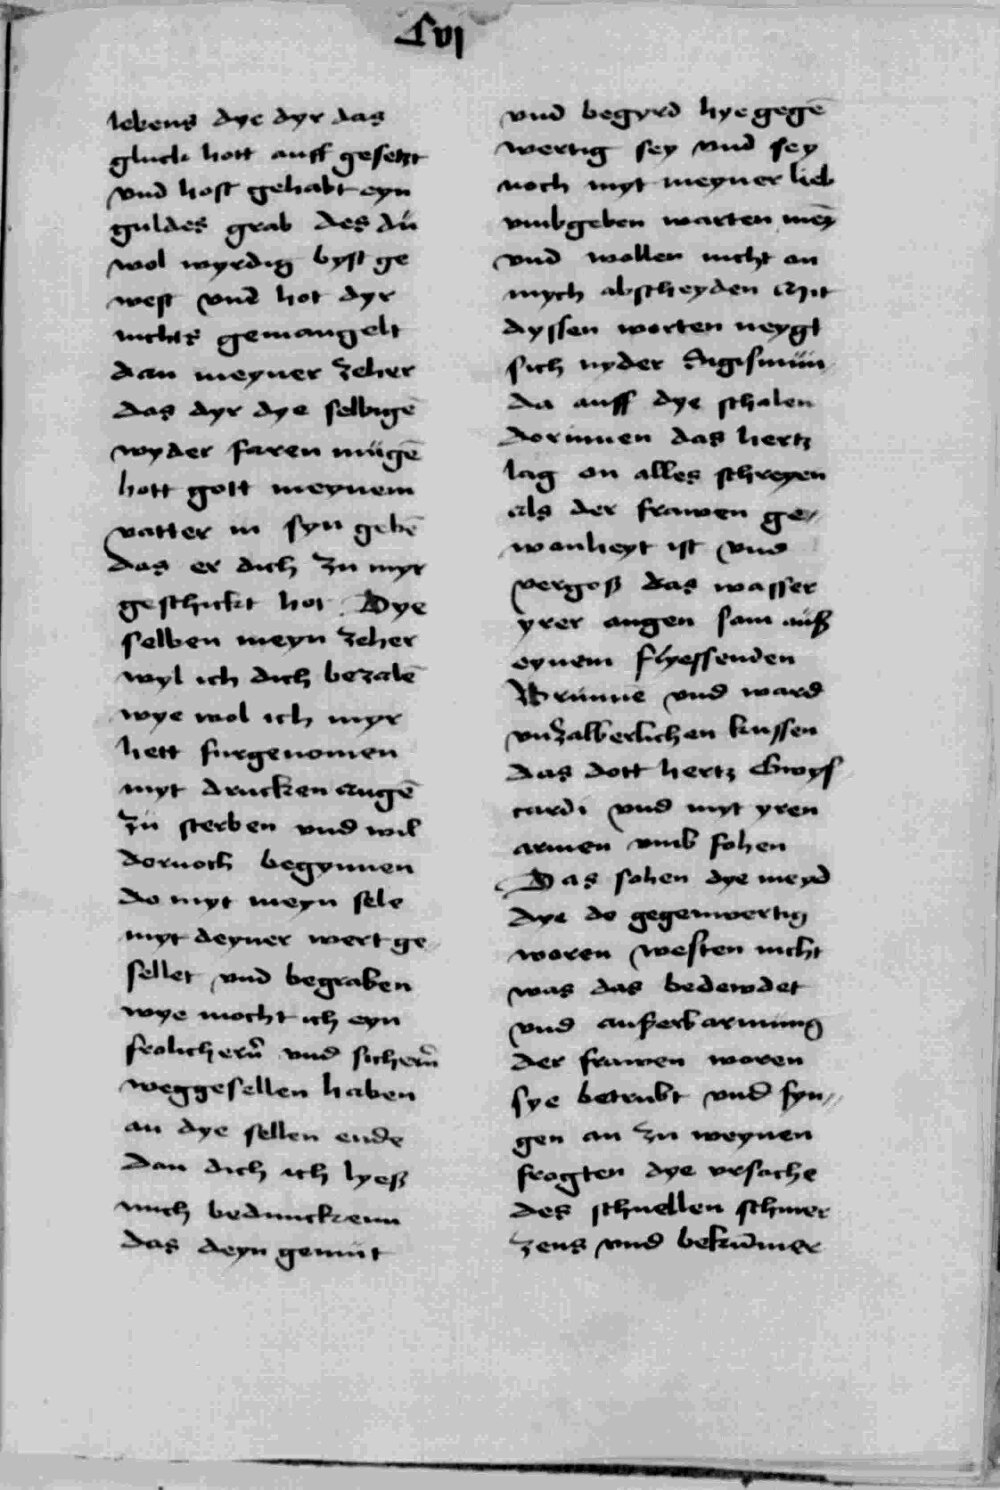 Lvi
lebens dye dyr das
gluck hott auff gesetzt
vnd host gehabt eyn
guldes grab des dü
wol wyrdig byst ge
west vnd hot dyr
nichts gemangelt
dan meyner zeher
das dyr dye selbigē
wyder faren mügē
hott gott meynem
vatter in syn gebē
das er dich zu myr
geschickt hot Dye
selben meyn zeher
wyl ich dich bezalē
wye wol ich myr
hett furgenomen
myt drucken augē
zü sterben vnd wil
dornoch begynnen
do myt meyn sele
myt deyner wert ge
sellet vnd begraben
wye mocht ich eyn
frolichern̄ vnd sichern̄
weggesellen haben
an dye sellen ende
dan dich ich lyeß
mich bedunckenn
das deyn gemüt
vnd begyrd hye gegē
wertig sey vnd sey
noch myt meyner lieb
vmbgeben warten mey̅
vnd wollen nicht on
mych abscheyden Mit
dyssen worten neygt
sich nyder Sigismün
da auff dye schalen
dorinnen das hertz
lag on alles schreyen
als der frawen ge〃
wonheyt ist vnd
vergoß das wasser
yrer augen sam auß
eynem flyessenden
Brünnē vnd ward
vnzalberlichen kussen
das dott hertz Gwys
cardi vnd myt yren
armen vmb fohen
Das sohen dye meyd
dye do gegenwertig
woren westen nicht
was das bedewdet
vnd auß erbarmung
der frawen woren
sye betrubt vnd fyn〃
gen an zu weynen
frogten dye vrsache
des schnellen schmer
zens vnd bekūmer